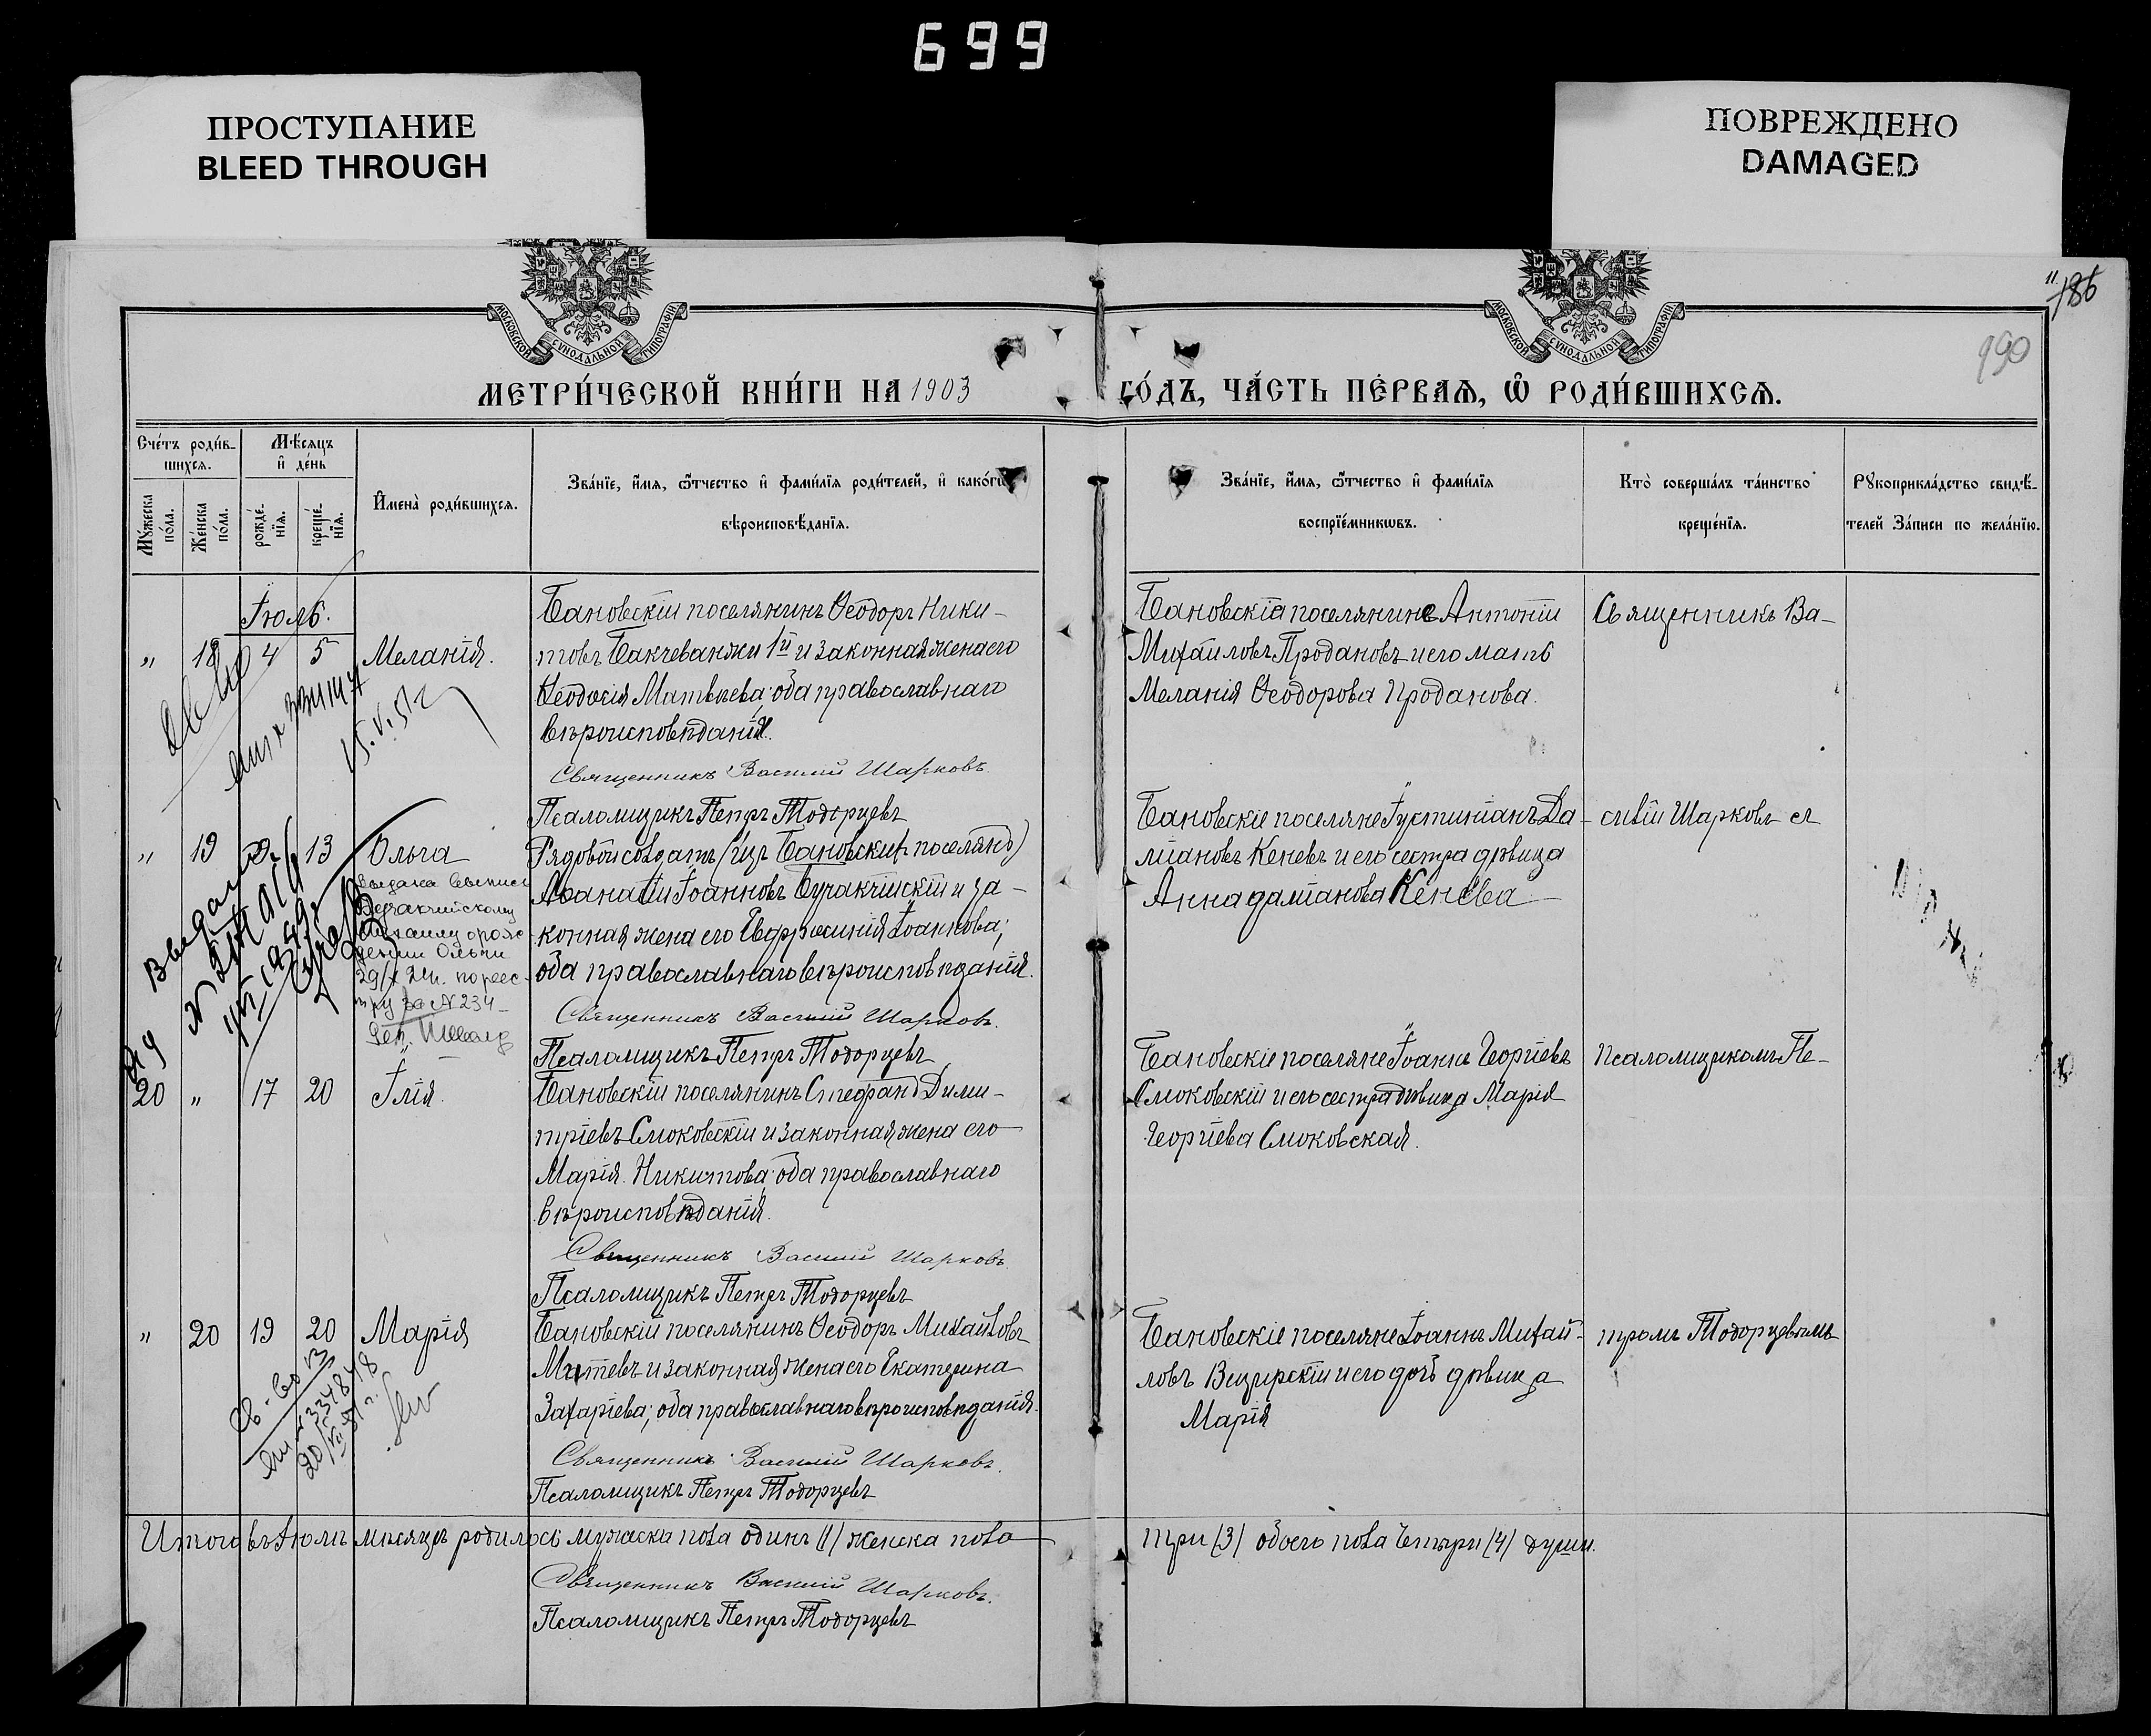 699
ПРОСТУПАНИЕ
BLEED THROUGH
ПОВРЕЖДЕНО
DAMAGED
МОСКОВСКОЙ СѴНОДАЛЬНОЙ ТИПОГРАФІИ
МОСКОВСКОЙ СѴНОДАЛЬНОЙ ТИПОГРАФІИ
186
990
МЕТРИ́ЧЕСКОЙ КНИ́ГИ НА 1903 ГО́ДЪ, ЧА́СТЬ ПЕ́РВАѦ, Ѡ҆ РОДИ́ВШИХСѦ.
Сче́тъ роди́в-
шихсѧ.
Мѣ́сѧцъ
и҆ де́нь
Мꙋ́жеска
по́ла.
Же́нска
по́ла.
рожде́-
нїѧ.
креще́-
нїѧ.
И҆мена̀ роди́вшихсѧ.
Зва́нїе, и҆́мѧ, ѻ҆́тчество и҆ фами́лїѧ роди́телей, и҆ како́гѡ
вѣроисповѣ́данїѧ.
Зва́нїе, и҆́мѧ, ѻ҆́тчество и҆ фами́лїѧ
воспрїе́мникѡвъ.
Кто̀ соверша́лъ та́инство
креще́нїѧ.
Рꙋкоприкла́дство свидѣ́-
телей за́писи по жела́нїю.
Іюль.
" 18 4 5 Меланія.
Бановскій поселянинъ Ѳеодоръ Ники-
товъ Бакчеванжи 1й и законная жена его
Ѳеодосія Матвѣева; оба православнаго
вѣроисповѣданія.
Священникъ Василій Шарковъ.
Псаломщикъ Петръ Тодорцевъ
Бановскій поселянинъ Антоній
Михаиловъ Продановъ и его мать
Меланія Ѳеодорова Проданова.
Священникъ Ва-
15.V.51г
" 19 13 Ольга
Рядовой солдатъ (изъ Бановскихъ поселянъ)
Аѳанасій Іоанновъ Бучакчійскій и за-
конная жена его Евфросинія Іоаннова;
оба православнаго вѣроисповѣданія.
Священникъ Василій Шарковъ.
Псаломщикъ Петръ Тодорцевъ
Бановскіе поселяне Іустиніанъ Да-
міановъ Кеневъ и его сестра дѣвица
Анна Даміанова Кенева
силій Шарковъ съ
выдана выпись
Бучакчийскому
Михаилу о рож-
дении Ольги
по реес-
тру за №234
20 " 17 20 Ілія.
Бановскій поселянинъ Стефанъ Дими-
тріевъ Смоковскій и законная жена его
Марія Никитова; оба православнаго
вѣроисповѣданія.
Священникъ Василій Шарковъ.
Псаломщикъ Петръ Тодорцевъ
Бановскіе поселяне Іоаннъ Георгіевъ
Смоковскій и его сестра дѣвица Марія
Георгіева Смоковская.
псаломщикомъ Пе-
" 20 19 20 Марія
Бановскій поселянинъ Ѳеодоръ Михайловъ
Митевъ и законная жена его Екатерина
Захаріева; оба православнаго вѣроисповѣданія.
Священникъ Василій Шарковъ.
Псаломщикъ Петръ Тодорцевъ
Бановскіе поселяне Іоаннъ Михай-
ловъ Вецирскій и его дочь дѣвица
Марія
тромъ Тодорцевымъ
Итого въ Іюлѣ мѣсяцѣ родилось мужеска пола одинъ (1) женска пола три (3) обоего пола четыри (4) души.
Священникъ Василій Шарковъ.
Псаломщикъ Петръ Тодорцевъ